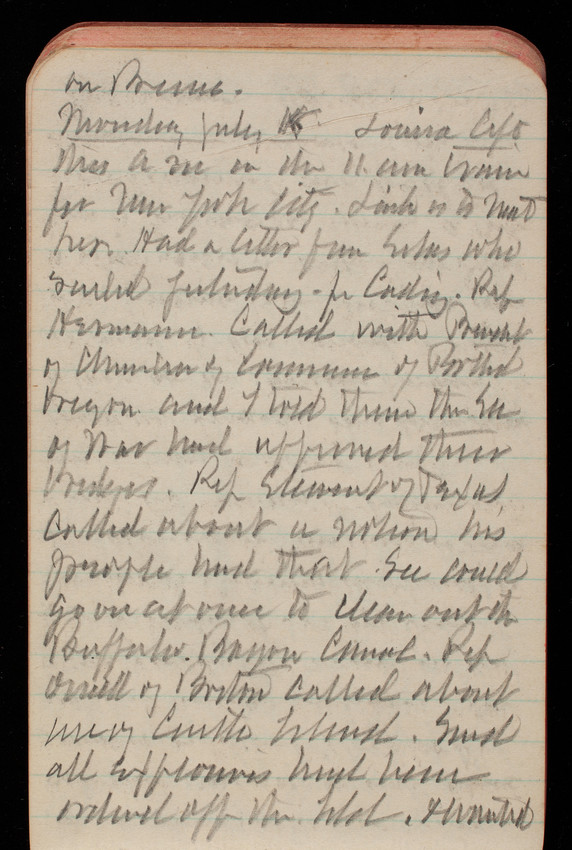 on Bureau.
Monday July 15 Louisa left
this a.m. on the 11. am train
for New York City. Link is to meet
her. Had a letter from Silas who
sailed yesterday for Cadiz. Rep
Hermann. Called with Presidt
of Chamber of Commerce of Portld
Oregon and I told them the Sec
of War had approved their
bridges. Rep Stewart of Texas
called about a notion his
people had that Sec could
go on at once to clear out the
Buffalo. Bayou Canal. Rep
of Boston called about
use of Castle Island. Said
all explosives had been
ordered off the Isld. & wanted